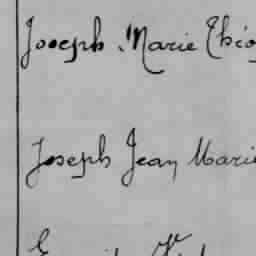 Joseph Marie Théo
Joseph Jean Marie